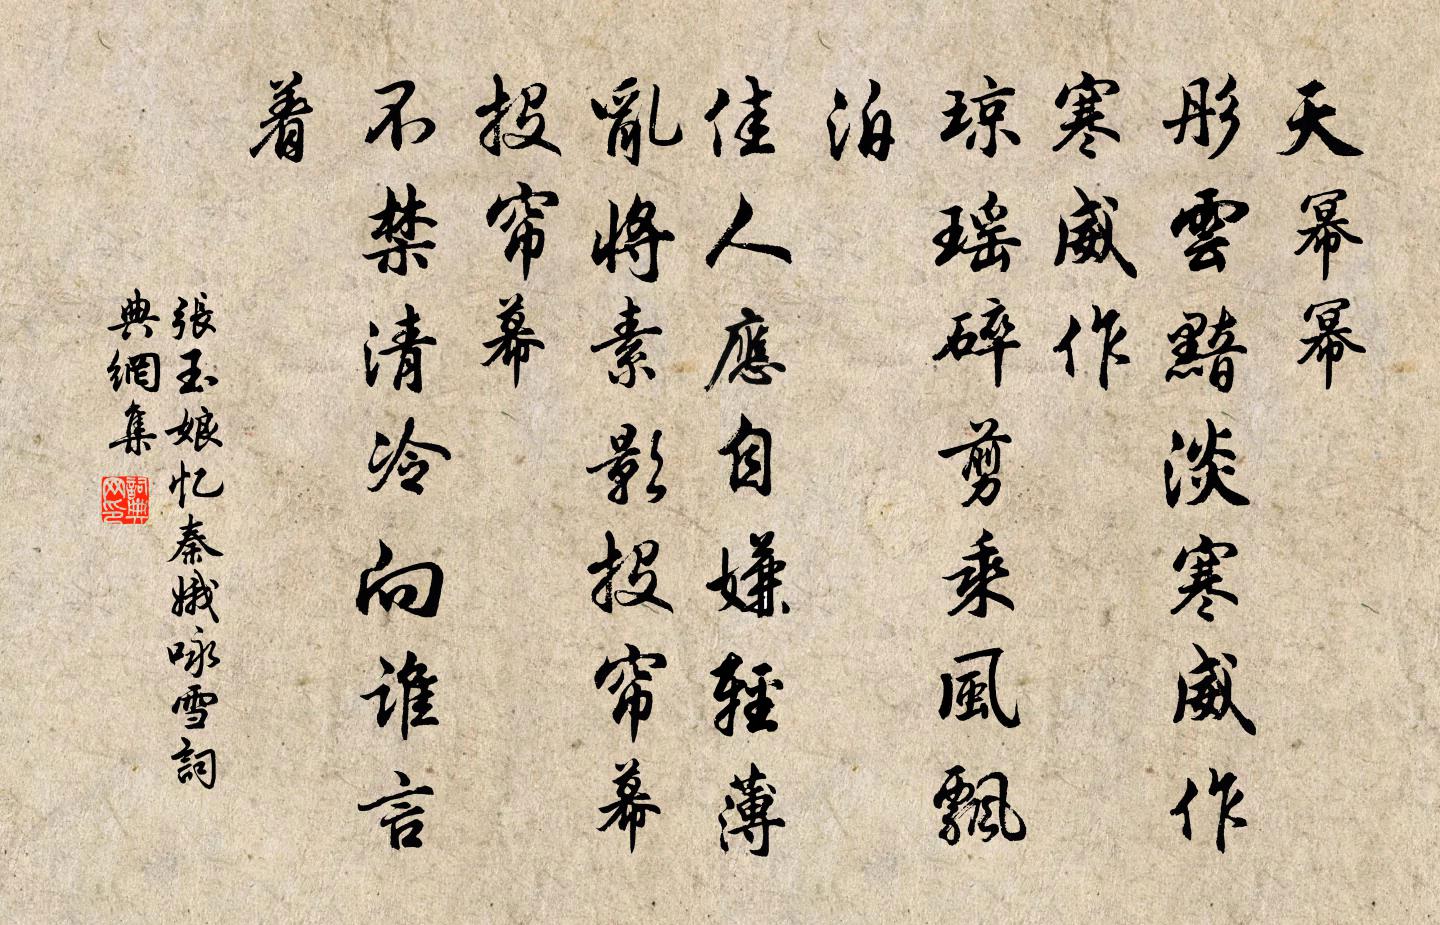 天幂幂
彤雲黯淡寒威作
寒威作
琼瑶碎剪乘風飄
泊
佳人應自嫌輕薄
亂將素影投帘幕
投帘幕
不禁清冷向谁言
着
張玉娘忆秦娥咏雪詞
典網集
詞典网印